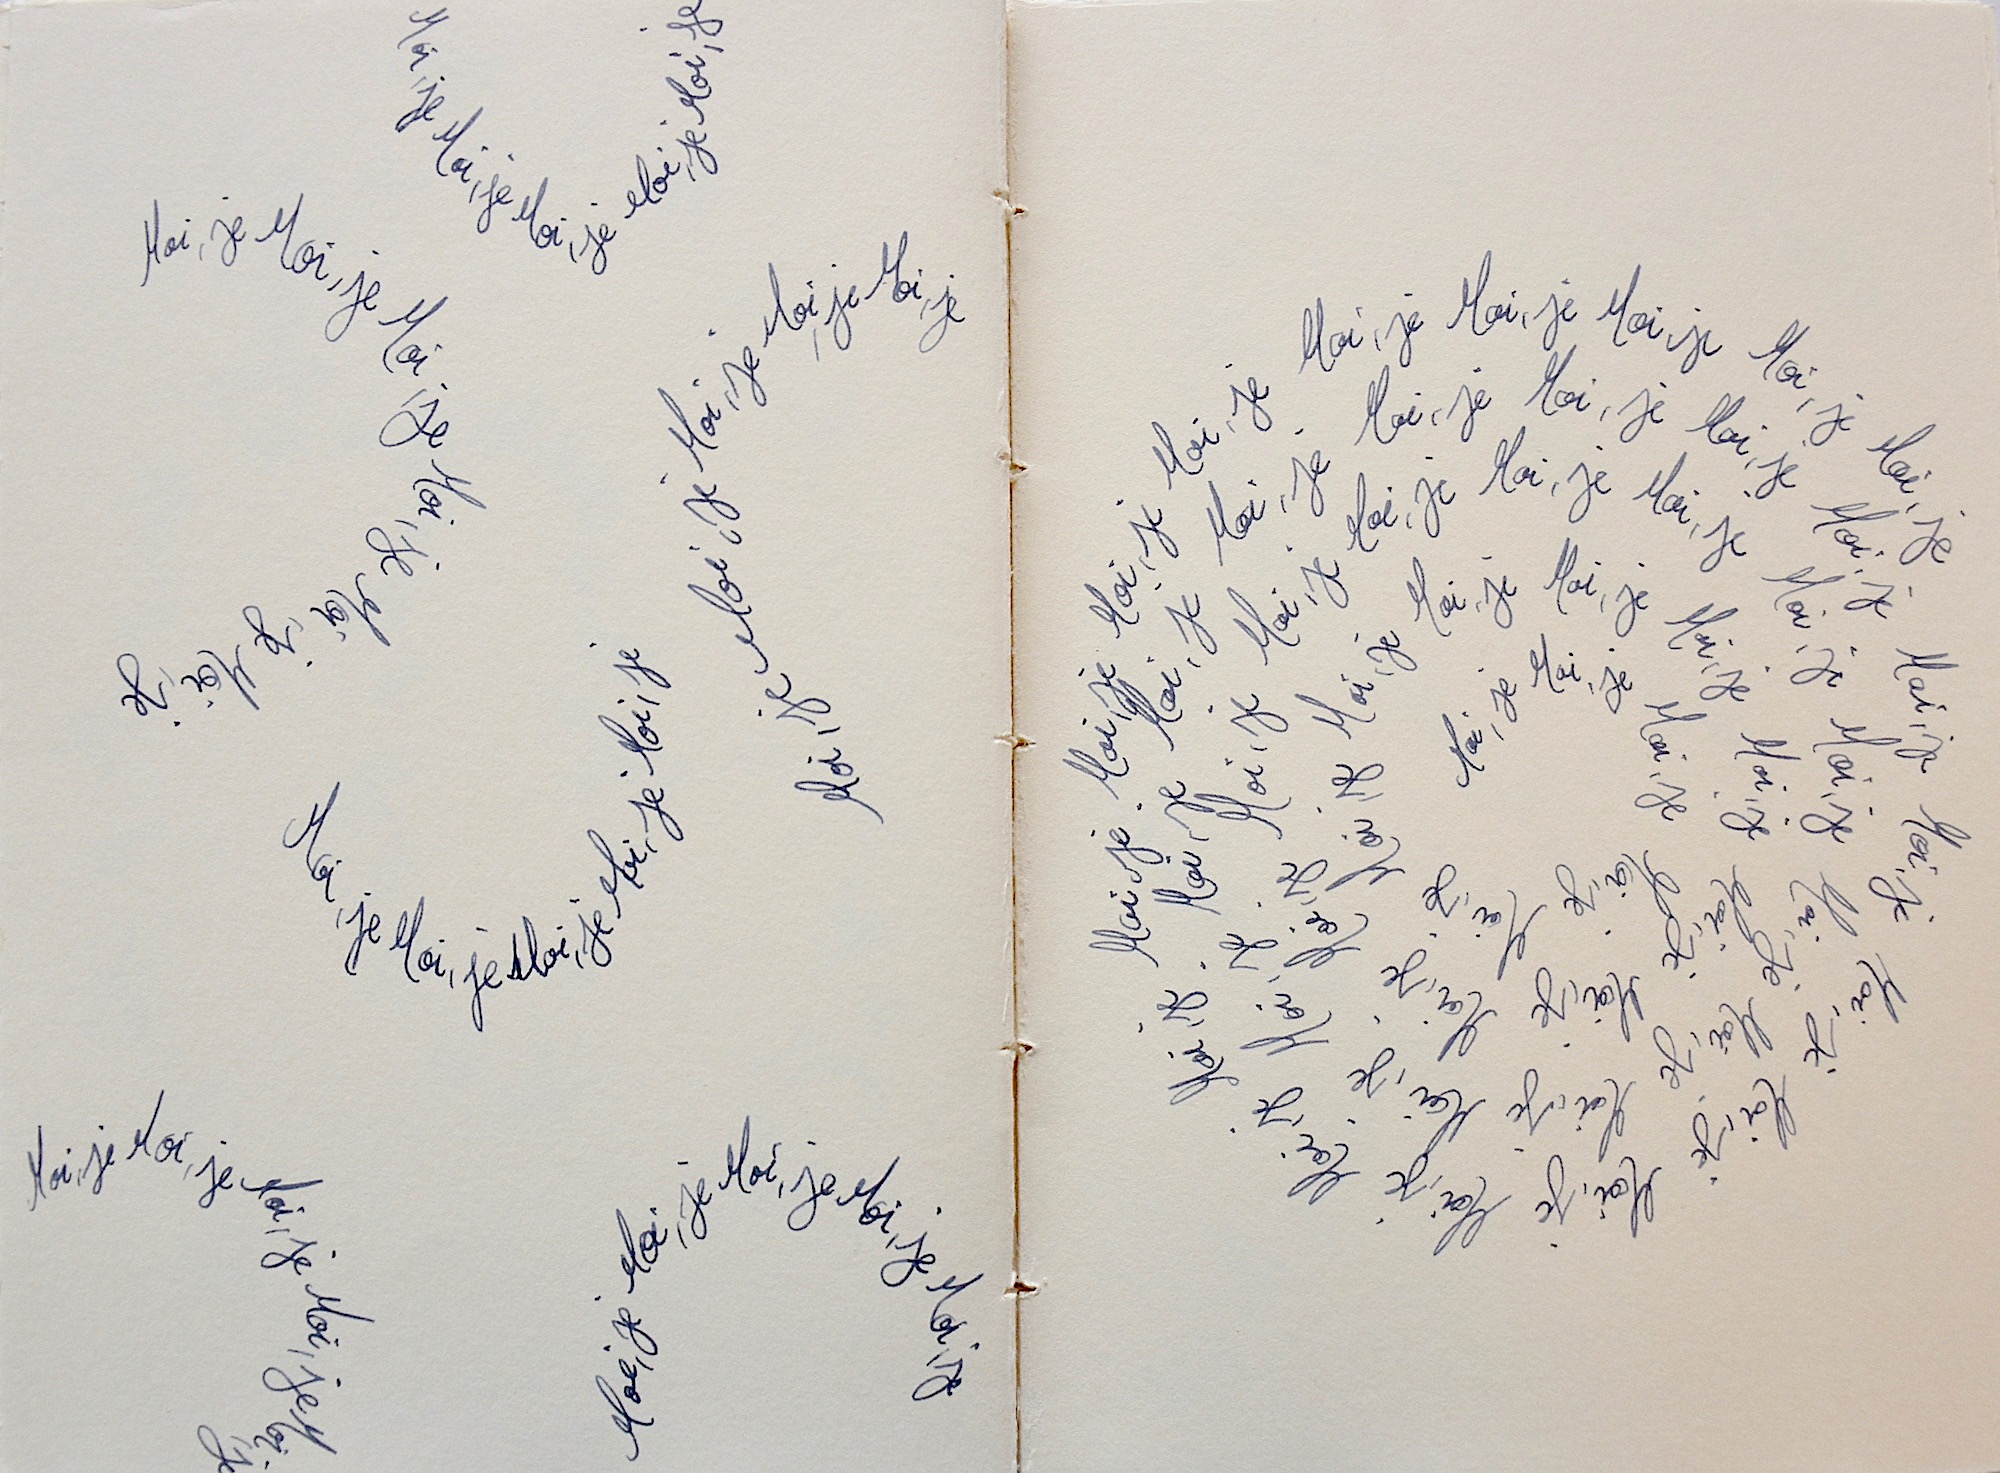 Moi, je Moi, je Moi, je Moi, je Moi, je
Moi, je Moi, je Moi, je Moi, je Moi, je Moi, je
Moi, je Moi, je Moi, je Moi, je Moi, je
Moi, je Moi, je Moi, je Moi, je Moi, je
Moi, je Moi, je Moi, je Moi, je Moi, je
Moi, je Moi, je Moi, je Moi, je Moi, je
Moi, je Moi, je Moi, je Moi, je Moi, je Moi, je Moi, je Moi, je Moi, je Moi, je Moi, je Moi, je Moi, je Moi, je Moi, je Moi, je Moi, je Moi, je Moi, je Moi, je Moi, je Moi, je Moi, je Moi, je Moi, je Moi, je Moi, je Moi, je Moi, je Moi, je Moi, je Moi, je Moi, je Moi, je Moi, je Moi, je Moi, je Moi, je Moi, je Moi, je Moi, je Moi, je Moi, je Moi, je Moi, je Moi, je Moi, je Moi, je Moi, je Moi, je Moi, je